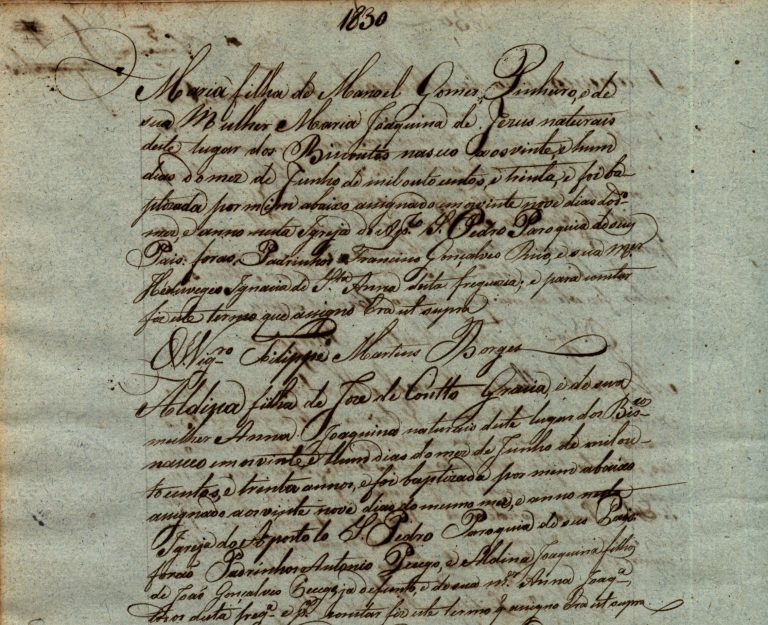 1830
Maria filha de Manoel Gomes Pinheiro, e de
sua Mulher Maria Joaquina de Jezus naturais
deste lugar dos Biscoitos nasceo aos vinte, e hum
dias do mez de Junho de mil outo centos, e trinta, e foi ba-
ptizada por mim abaico assignado em os vinte nove dias do dº
mez e anno nesta Igreja do Apº S. Pedro Paroquia de seus
Pais: foraõ Padrinhos Francisco Gonçalves e sua mer
Ignacia de Sta Anna desta freguezia; e para constar
fiz este termo que assigno Era ut supra
O Vigrº Filippe Martins Borges
Aldina filha de Joze de Coutto e de sua
mulher Anna Joaquina naturais deste lugar dos Biscos
nasceo em os vinte, e Hum dias do mez de Junho de mil ou-
tocentos, e trinta annos, e foi baptizada por mim abaico
assignado aos vinte nove dias do mesmo mez, e anno nesta
Igreja do Apostolo S. Pedro Paroquia de seus Pais
foraõ Padrinhos Antonio e Aldina Joaquina filhos
de Joaõ Gonçalves defunto, e de sua mer Anna Joaqª
todos desta freqª e pª constar fiz este termo q assigno Era ut supra